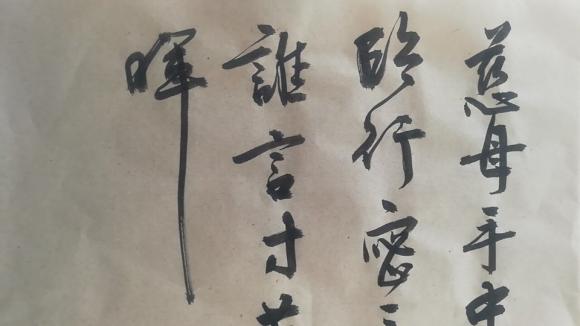 慈母手中
臨行密
誰言寸草
暉